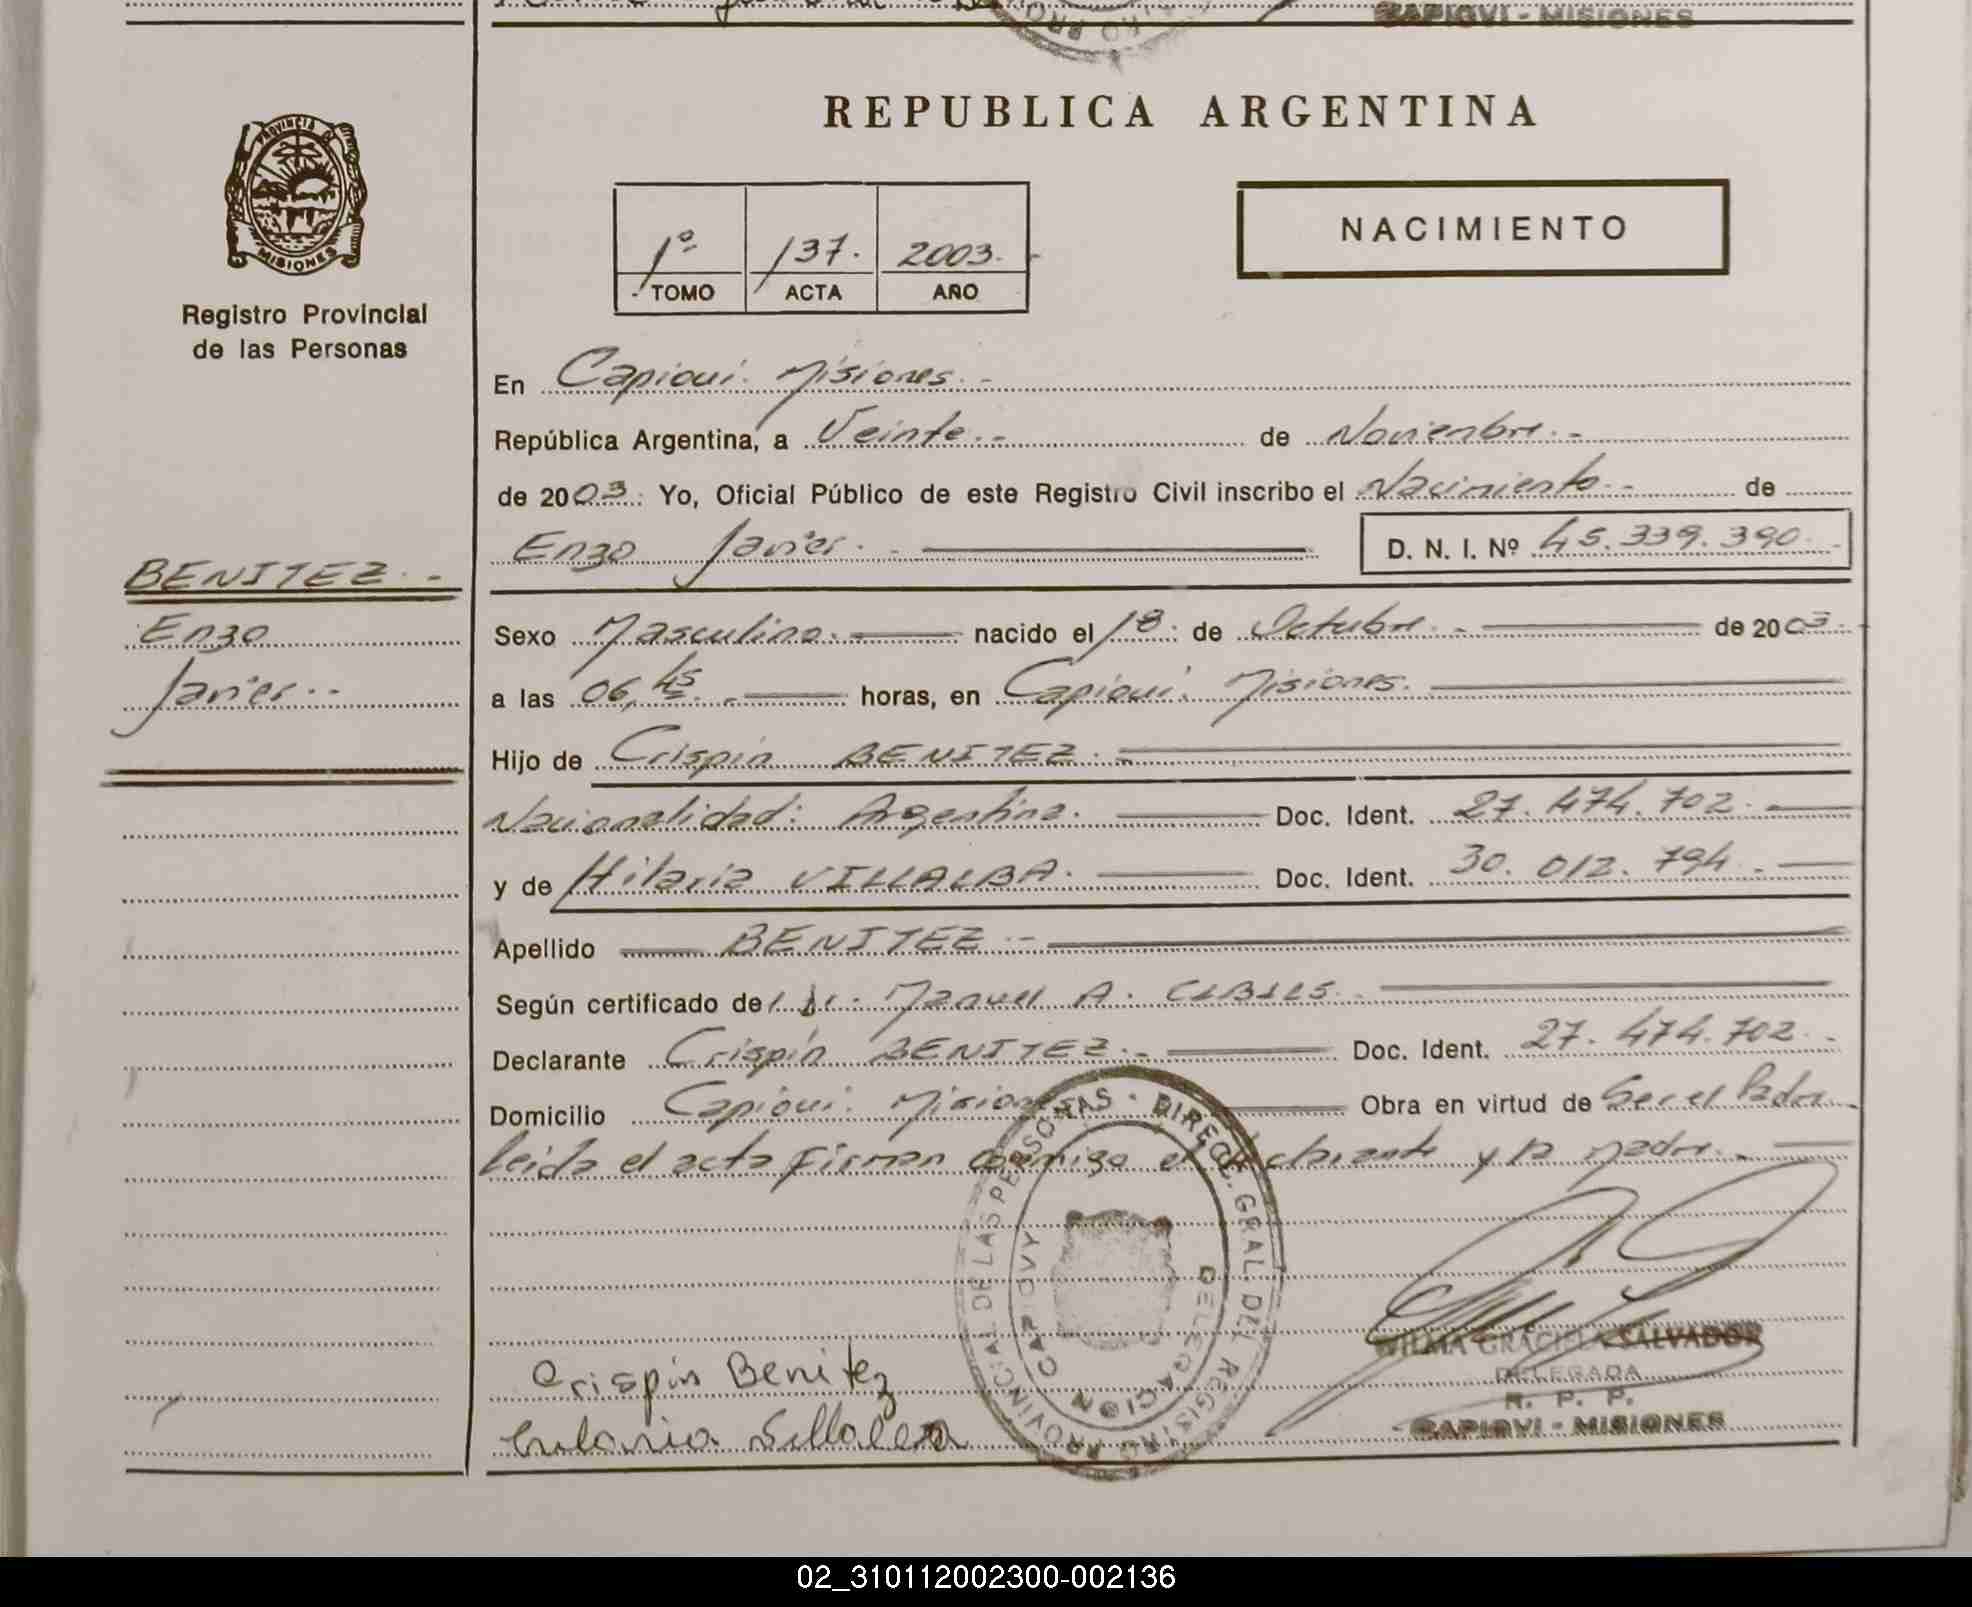 CAPIOVI - MISIONES
PROVINCIA DE
MISIONES
Registro Provincial
de las Personas
REPUBLICA ARGENTINA
1º 137. 2003.
TOMO ACTA AÑO
NACIMIENTO
En Capioví. Misiones.-
República Argentina, a Veinte.- de Noviembre.-
de 2003. Yo, Oficial Público de este Registro Civil inscribo el Nacimiento.- de
Enzo Javier.- D. N. I. Nº 45.339.390.-
BENITEZ.-
Enzo
Javier.-
Sexo Masculino. nacido el 18. de Octubre.- de 2003.-
a las 06,45.- horas, en Capioví. Misiones.
Hijo de Crispín BENITEZ.-
Nacionalidad: Argentina. Doc. Ident. 27.474.702.-
y de Hilaria VILLALBA. Doc. Ident. 30.012.794.-
Apellido BENITEZ.-
Según certificado del Dr. Manuel A.
Declarante Crispín BENITEZ.- Doc. Ident. 27.474.702.-
Domicilio Capioví. Misiones Obra en virtud de Ser el Padre
leida el acta firman conmigo el declarante y la madre.-
DIRECC. GRAL. DEL REGISTRO PROVINCIAL DE LAS PERSONAS
DELEGACION CAPIOVY
Crispin Benitez
WILMA GRACIELA SALVADOR
DELEGADA
R. P. P.
CAPIOVI - MISIONES
02_310112002300-002136